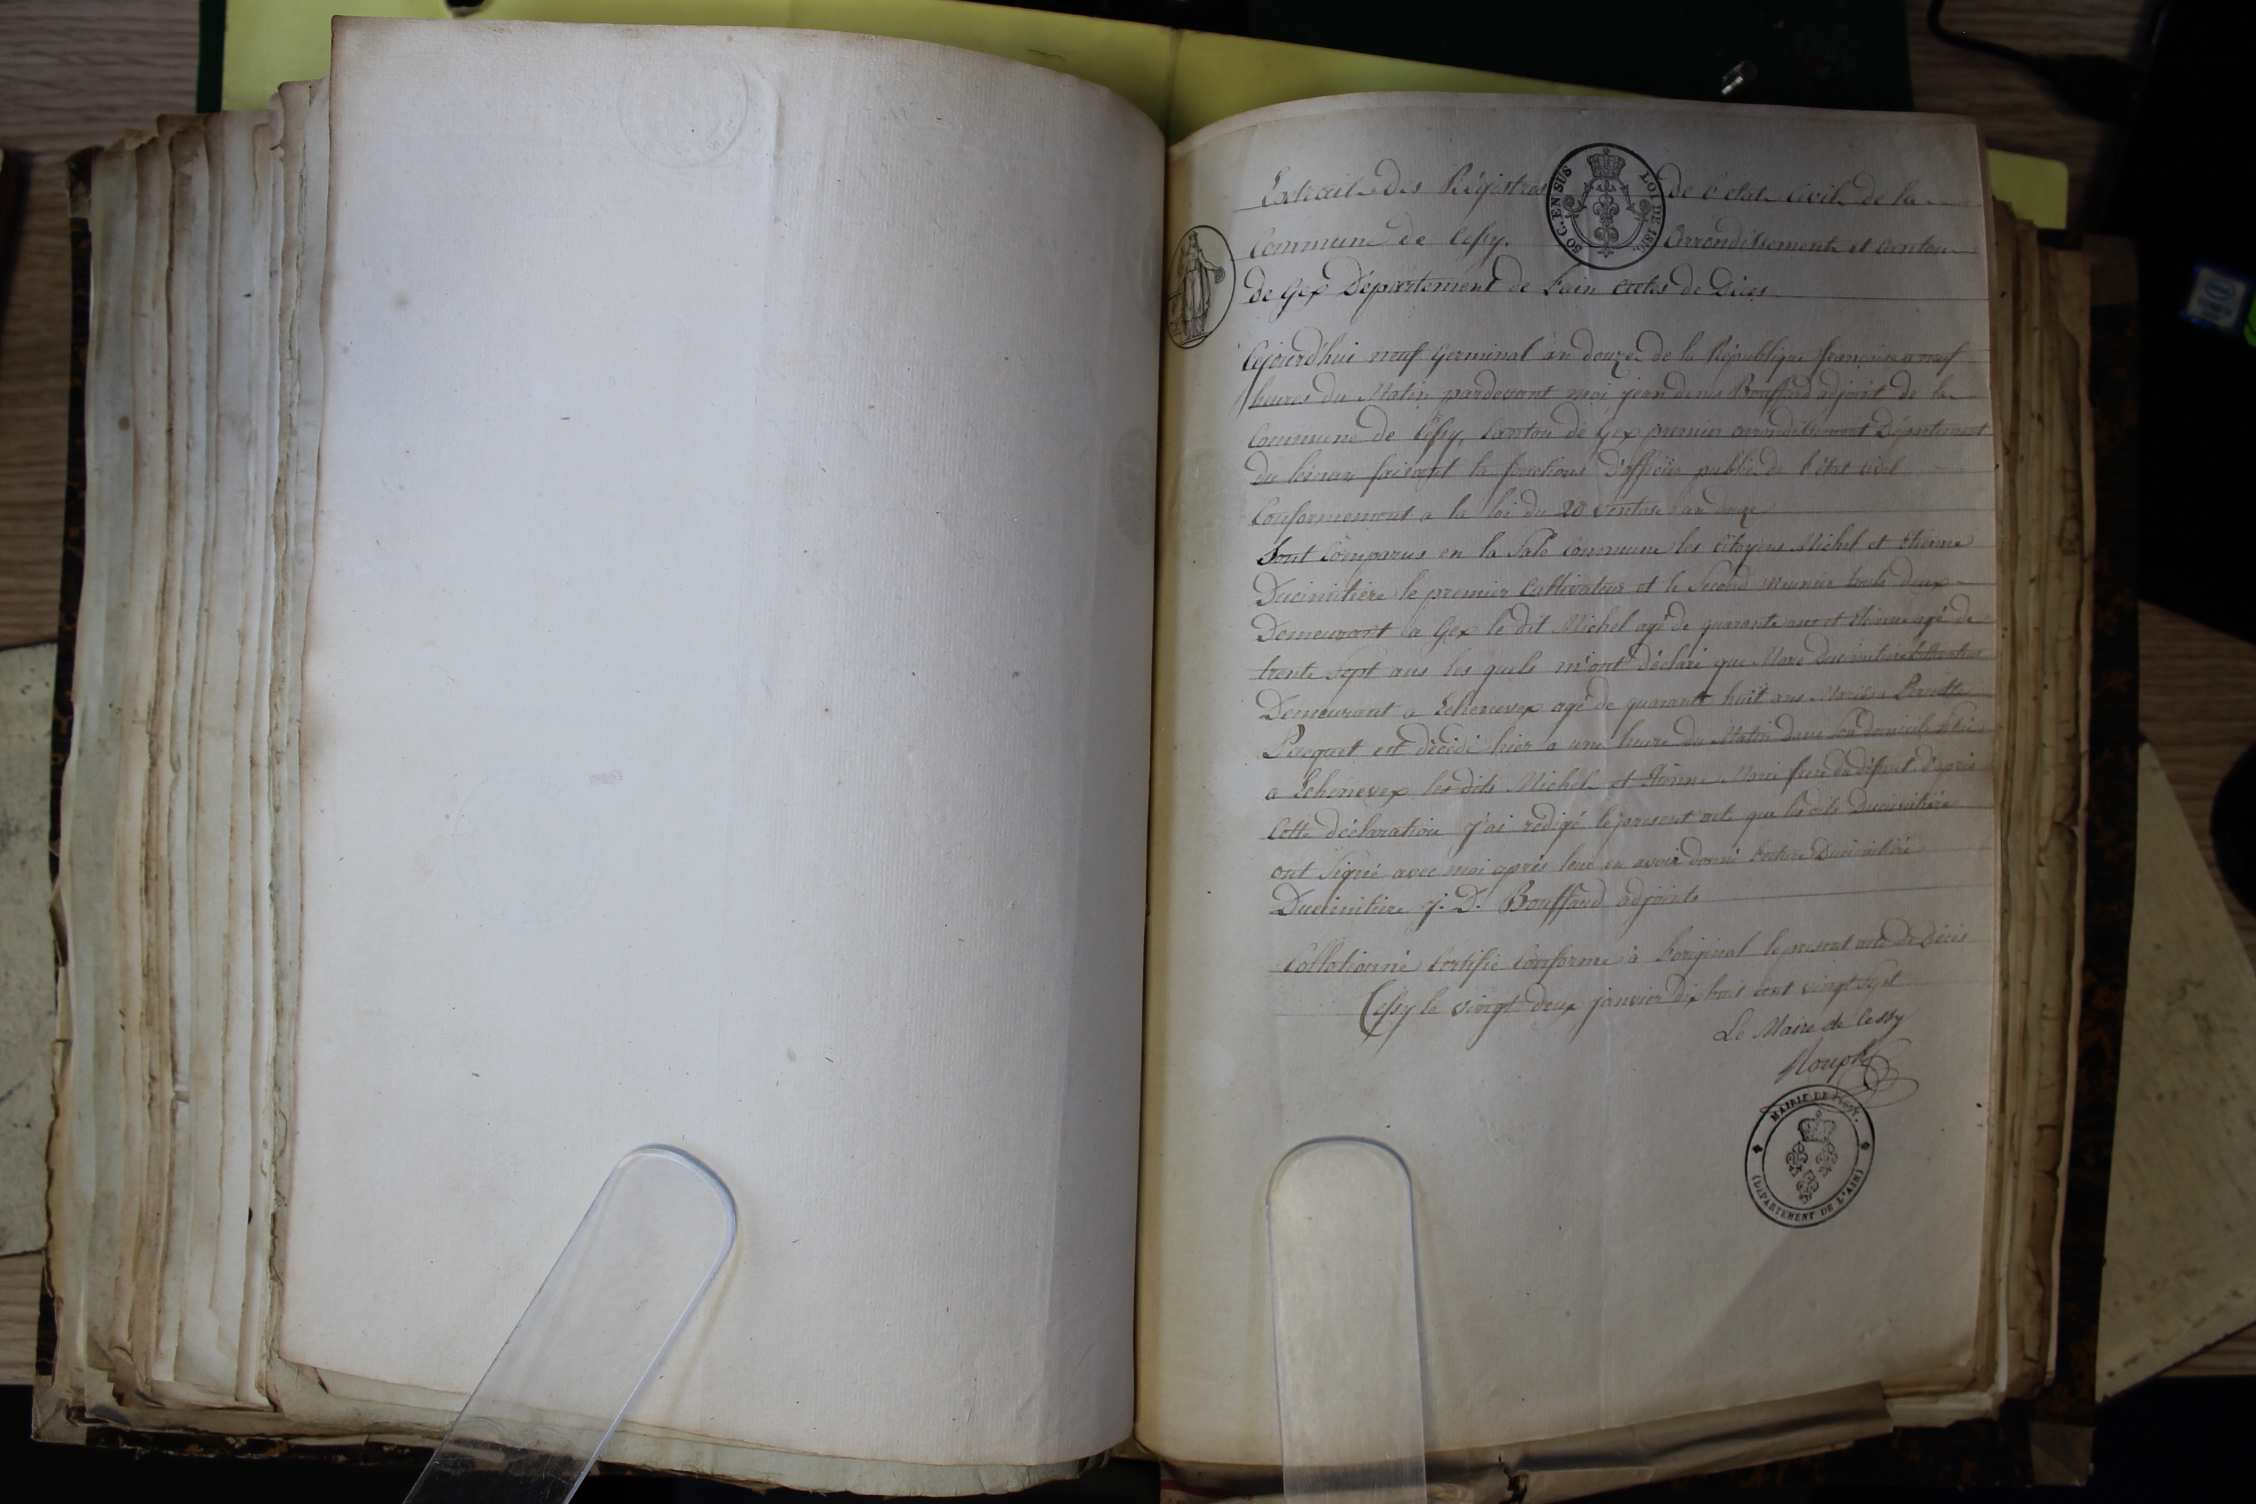 Extrait des Régistres de l'état Civil de la
Commune de Cessy. Arrondissement et Canton
de Gex Département de l'ain actes de Décès
50 C. EN SUS LOI DE 1816.
Cejourd'hui neuf Germinal an douze de la République française a neuf
heures du Matin pardevant moi jean denis Bouffard adjoint de la
Commune de Cessy, Canton de Gex premier arrondissement Département
du Léman faisant les fonctions d'officier public de l'état civil
Conformement a la loi du 20 ventose an douze
Sont Comparus en la Sale Commune les Citoyens Michel et Etienne
Ducimitière le premier Cultivateur et le Second Meunier touts deux
Demeurant a Gex le dit Michel agé de quarante ans et Etienne agé de
trente Sept ans les quels m'ont déclaré que Marc Ducimitière
Demeurant a Echenevex agé de quarante huit ans Marié a Pernette
Pacquet est décédé hier a une heure du Matin dans Son domicile
a Echenevex les dits Michel et Etienne frere du défunt d'après
Cette déclaration j'ai rédigé le present acte que les dits Ducimitière
ont Signé avec moi après leur en avoir donné lecture Ducimitière
Ducimitière J. D. Bouffard adjoint
Collationné Certifié Conforme à l'original le present acte de Décès
Cessy le vingt deux janvier dix huit cent vingt sept
Le Maire de Cessy
MAIRIE DE CESSY.
(DÉPARTEMENT DE L'AIN)